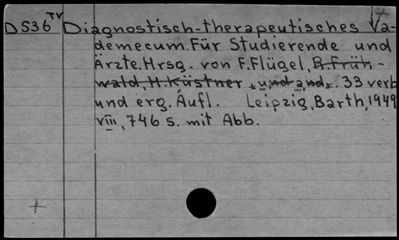 D 536 TV Diagnostisch-therapeutisches Va-
demecum. Für Studierende und
Ärzte. Hrsg. von F. Flügel, B. Früh-
wald, H. Küstner u.nd a.nd. 33 verb
und erg. Aufl. Leipzig, Barth, 1949
VIII, 746 s. mit Abb.
+